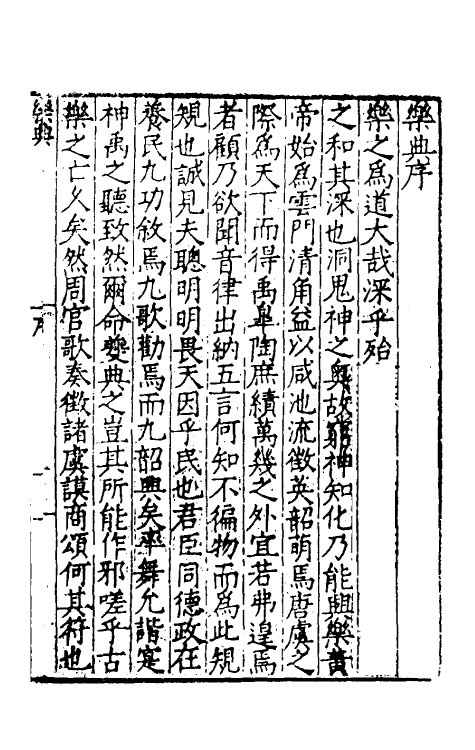 樂典序
樂之爲道大哉深乎殆
之和其深也洞鬼神之奥故窮神知化乃能興樂黄
帝始爲雲門清角益以咸池流徵英韶萌焉唐虞之
際爲天下而得禹臯陶庶績萬幾之外宜若弗遑焉
者顧乃欲聞音律出納五言何知不徧物而爲此規
規也誠見夫聰明明畏天因乎民也君臣同德政在
養民九功敘焉九歌勸焉而九韶興矣率舞允諧寔
神禹之聽致然爾命夔典之豈其所能作邪嗟乎古
樂之亡久矣然周官歌奏徵諸虞謨商頌何其符也
樂典
序
一